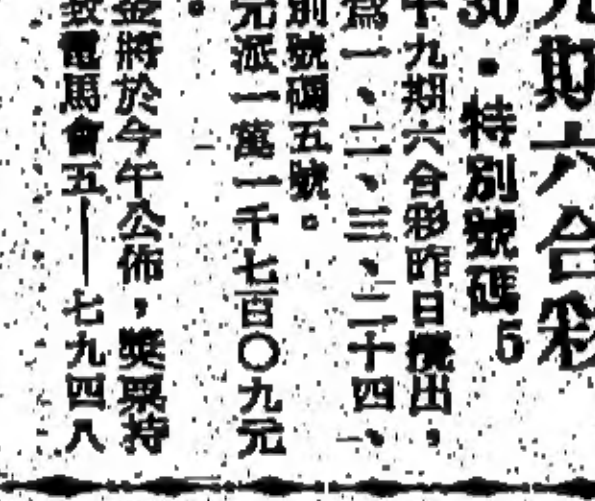 九期六合彩
30・特別號碼5
十九期六合彩昨日攪出，
為一、二、三、二十四、
別號碼五號。
元派一萬一千七百〇九元
。
金將於今午公佈，獎票持
致電馬會五——七九四八